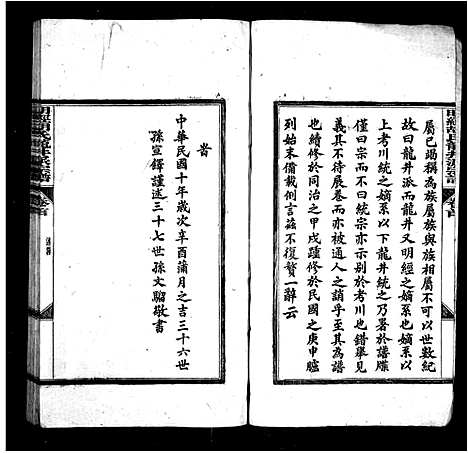 屬已竭稱為族屬族與族相屬不可以世數紀
故曰龍井派而龍井又明經之嫡系以
上考川統之嫡系以下龍井統之乃署於譜牒
僅曰宗而不曰統宗亦示別於考川也錯舉見
義其不待展卷而亦被通人之誚乎至其為譜
也續修於同治之甲戌踵修於民國之庚申臚
列始末備載例言茲不復贅一辭云
明經胡氏龍井派宗譜
卷首
旹
中華民國十年歲次辛酉蒲月之吉三十六世
孫宣鐸謹述三十七世孫文騮敬書
明經胡氏龍井派宗譜
卷首